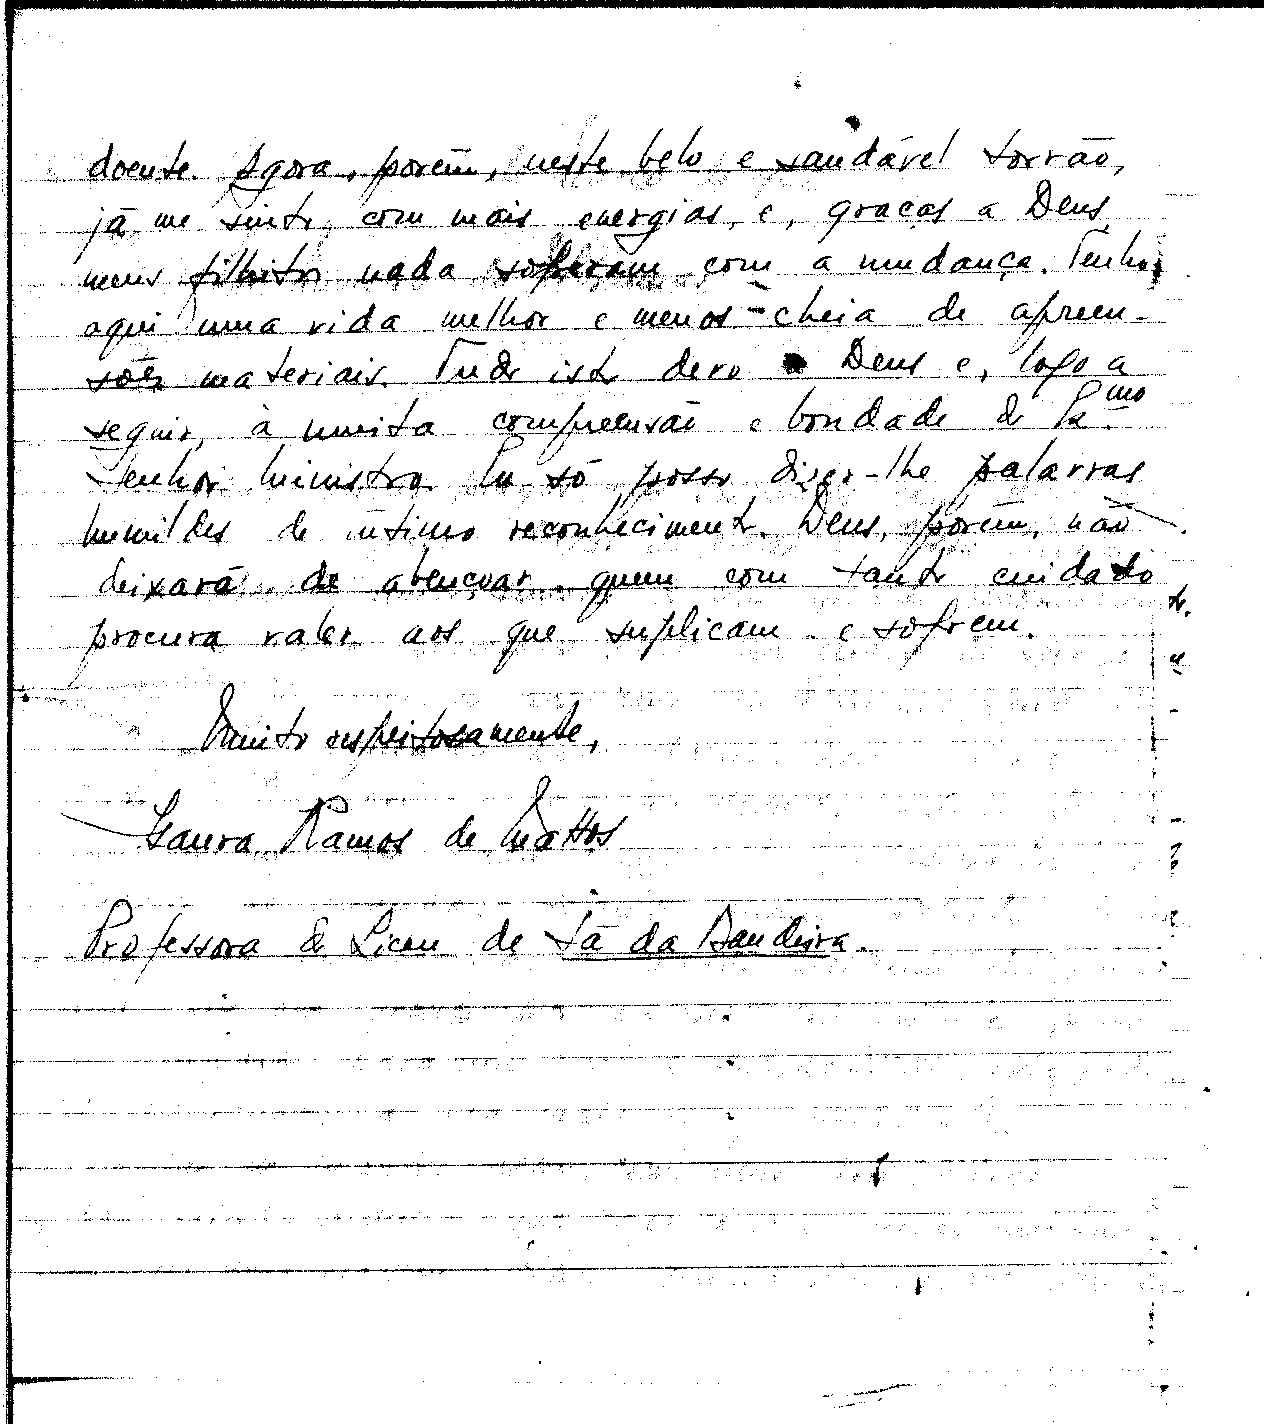 doente. Agora, porém, neste belo e saudável torrão,
já me sinto com mais energias, e, graças a Deus
meus filhitos nada sofreram com a mudança. Tenho
aqui uma vida melhor e menos cheia de apreen-
sões materiais. Tudo isto devo a Deus e, logo a
seguir, à muita compreensão e bondade do Ex.mo
Senhor Ministro. Eu só posso dizer-lhe palavras
humildes de íntimo reconhecimento. Deus, porém, não
deixará de abençoar quem com tanto cuidado
procura valer aos que suplicam e sofrem.
Muito respeitosamente,
Laura Ramos de Mattos
Professora do Liceu de Sá da Bandeira.